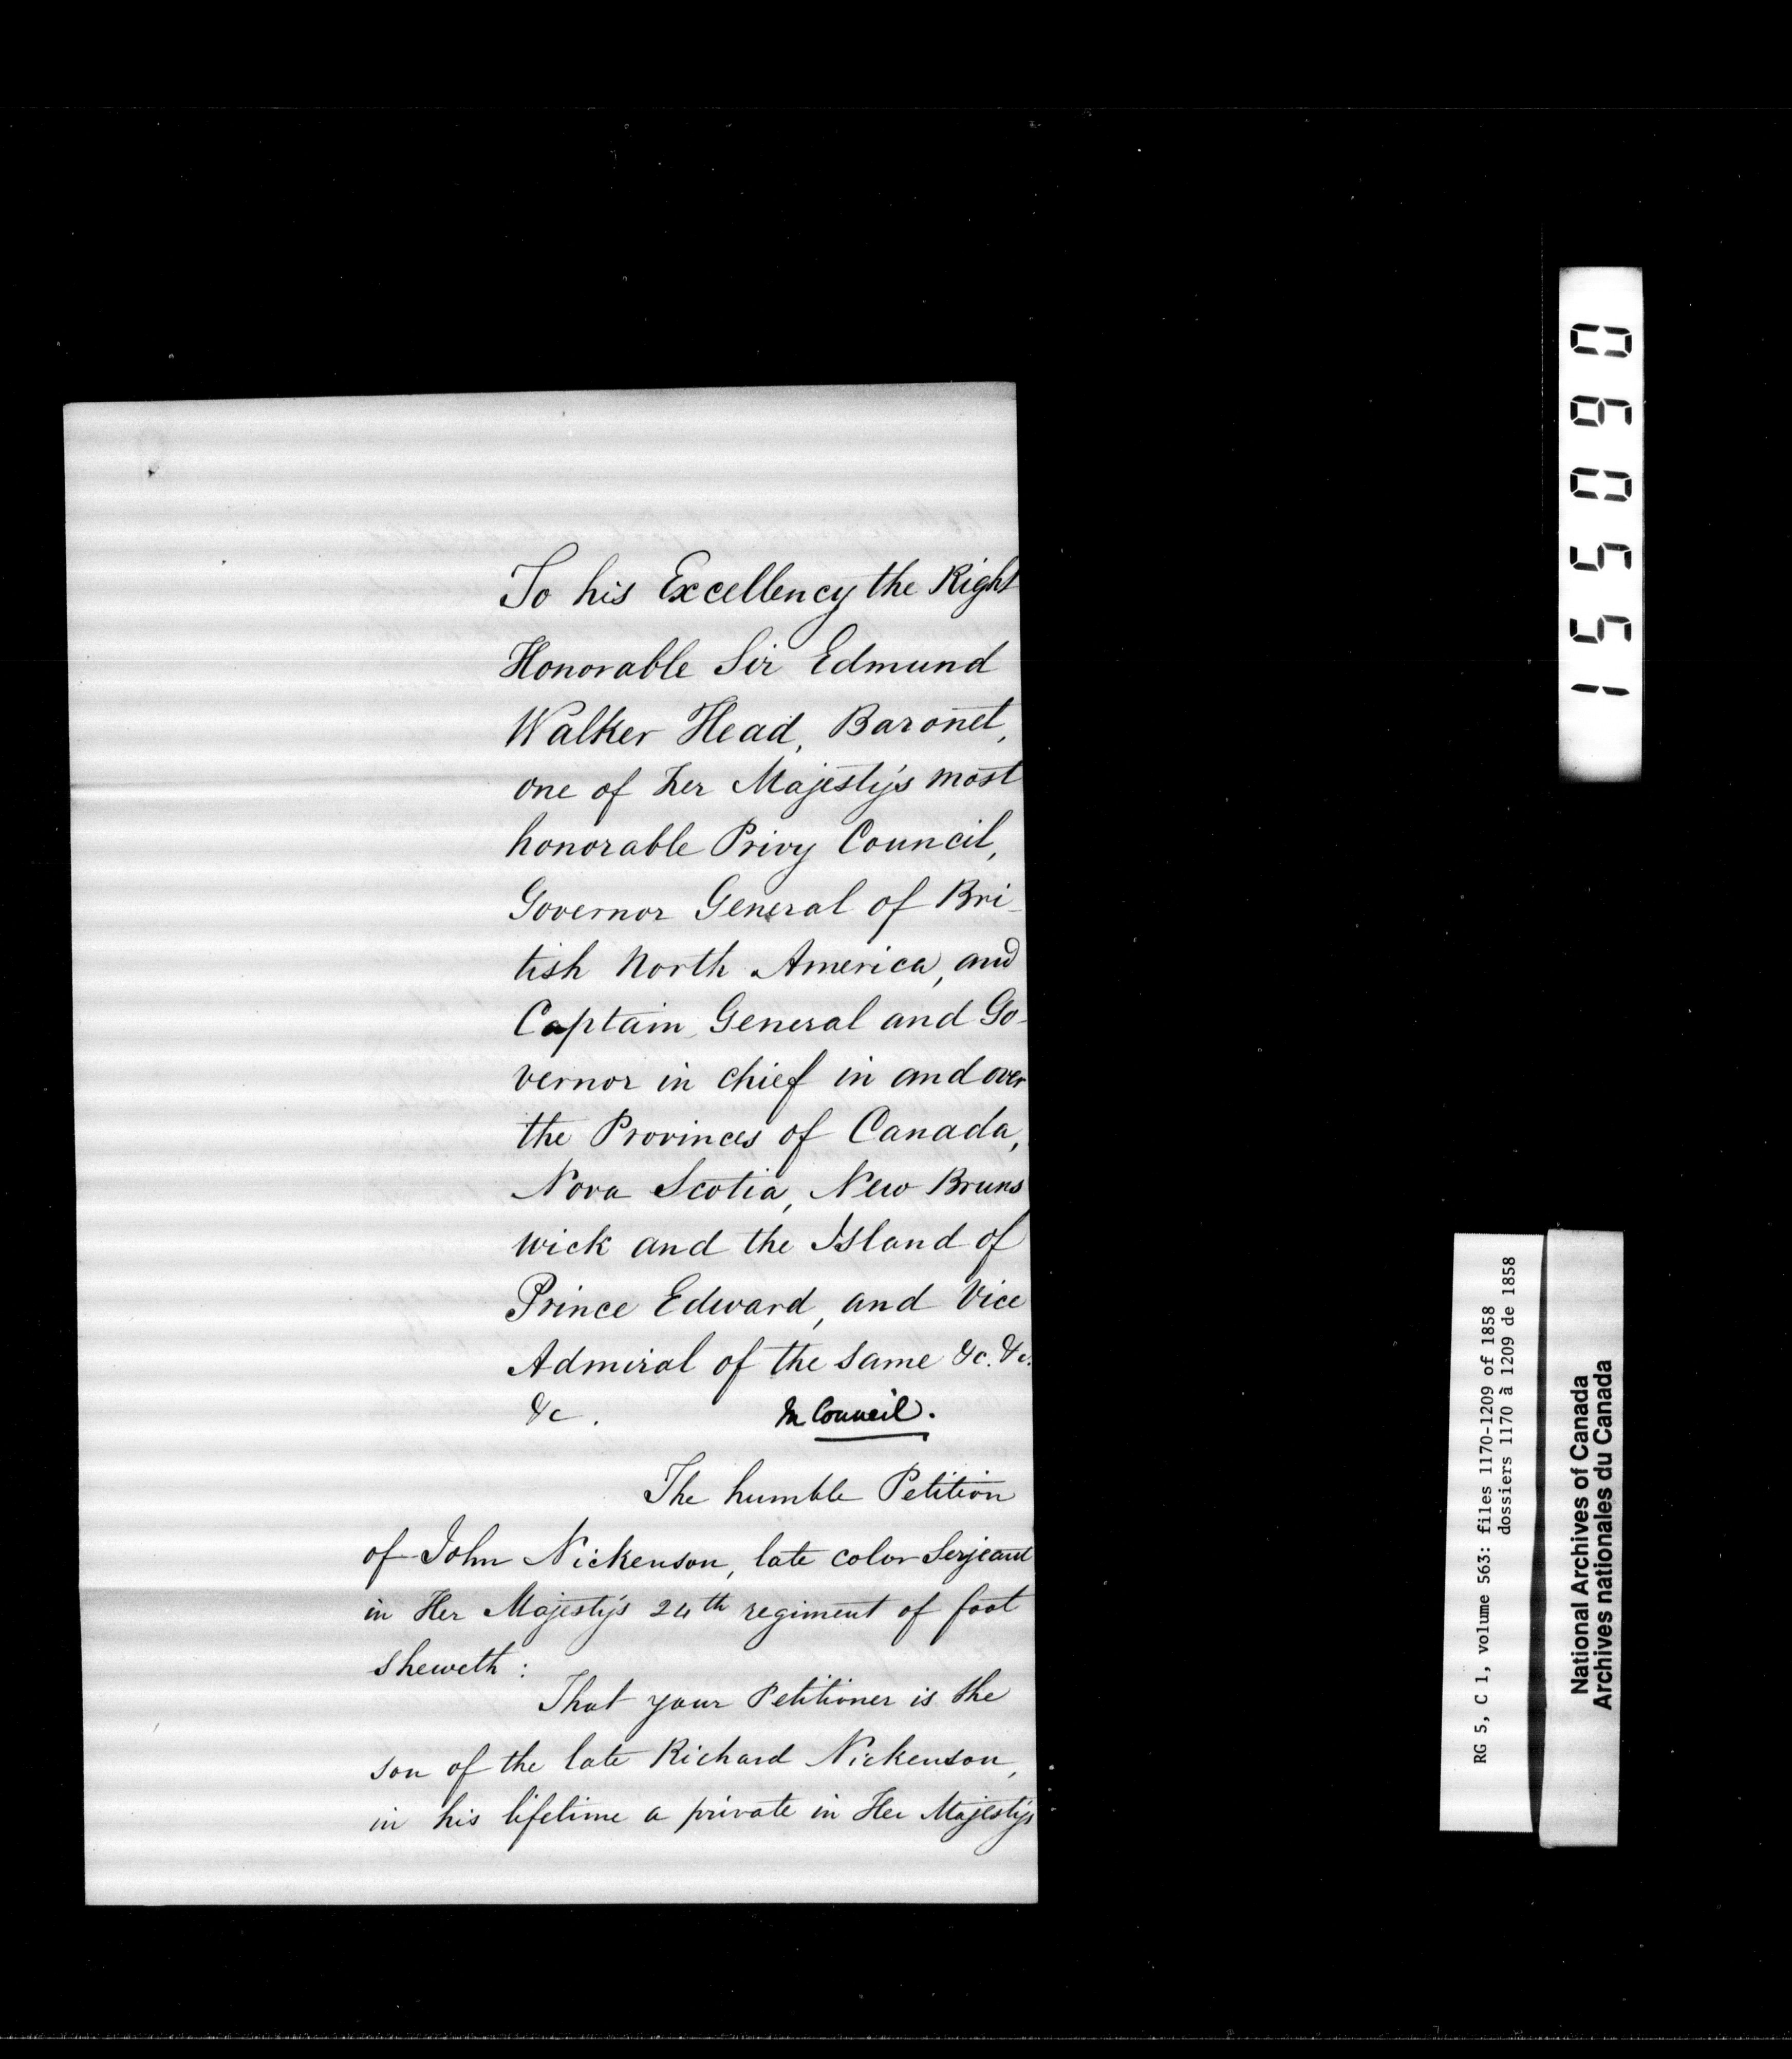 To his Excellency the Right
Honorable Sir Edmund
Walker Head, Baronet,
one of her Majesty's most
honorable Privy Council,
Governor General of Bri-
tish North America, and
Captain General and Go-
vernor in chief in and over
the Provinces of Canada,
Nova Scotia, New Bruns
wick and the Island of
Prince Edward, and Vice
Admiral of the same &c. &c.
&c. In Council.
The humble Petition
of John Nickenson, late color Serjeant
in Her Majesty's 24th regiment of foot
sheweth:
That your Petitioner is the
son of the late Richard Nickenson,
in his lifetime a private in Her Majesty's
155060
RG 5, C 1, volume 563: files 1170-1209 of 1858
dossiers 1170 à 1209 de 1858
National Archives of Canada
Archives nationales du Canada